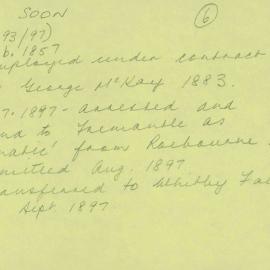 SOON
6
93/97)
b. 1857
mployed under contract
George McKay 1883.
7. 1897 - assessed and
nd to Fremantle as
natic' from Roebourne
mitted Aug. 1897.
ansferred to Whitby Fal
Sept. 1897